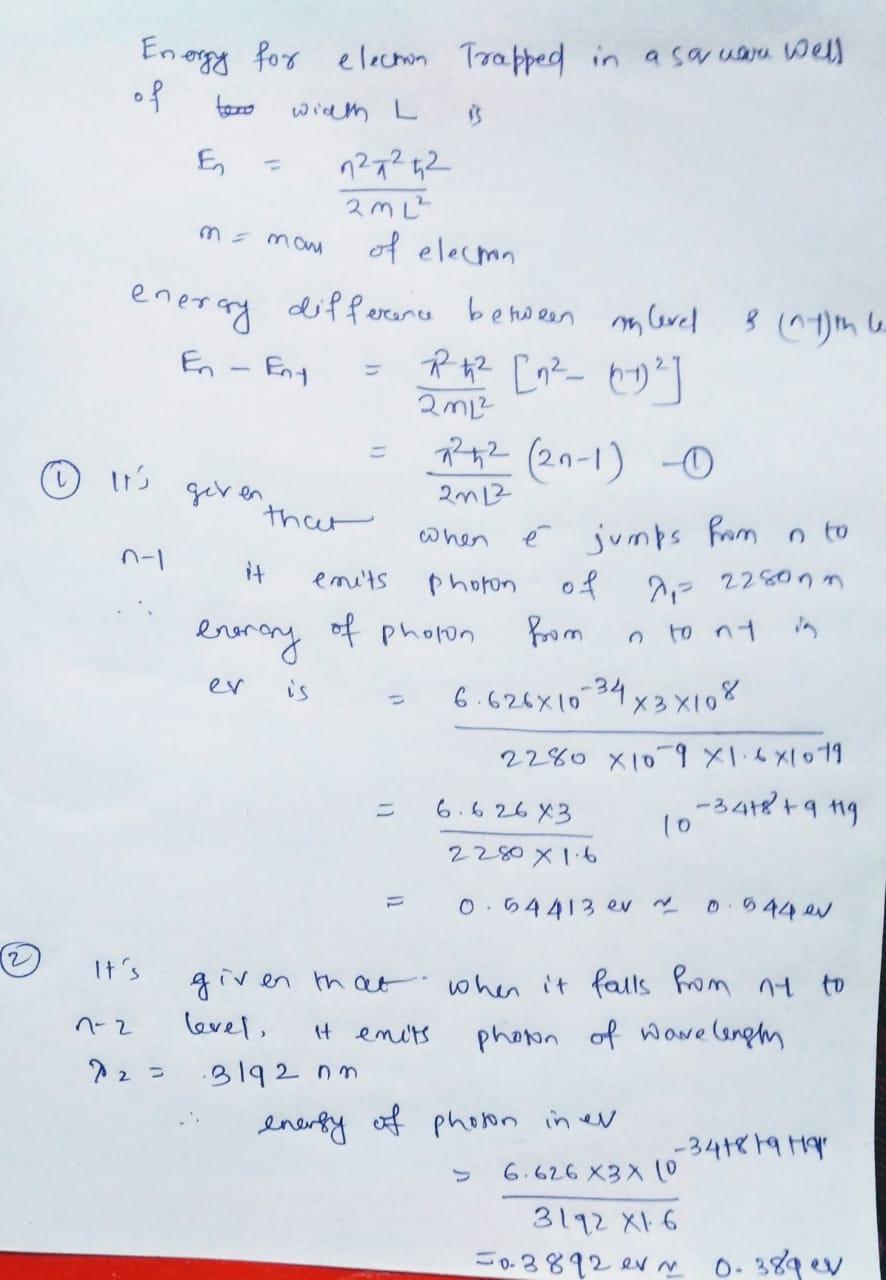 Energy for electron Trapped in a square well
of width L is
En = n²π²ħ² / 2mL²
m = mass of electron
energy difference between nth level & (n-1)th le
En - En-1 = π²ħ² / 2mL² [n² - (n-1)²]
= π²ħ² / 2mL² (2n-1) - ①
① It's given that when e⁻ jumps from n to
n-1 it emits photon of λ₁ = 2280 nm
∴ energy of photon from n to n-1 in
ev is = 6.626×10⁻³⁴ × 3×10⁸ / 2280 ×10⁻⁹ ×1.6×10⁻¹⁹
= 6.626×3 / 2280×1.6 10⁻³⁴⁺⁸⁺⁹⁺¹⁹
= 0.54413 ev ≃ 0.544 ev
② It's given that when it falls from n-1 to
n-2 level, it emits photon of wavelength
λ₂ = 3192 nm
∴ energy of photon in ev
= 6.626×3×10⁻³⁴⁺⁸⁺⁹⁺¹⁹ / 3192×1.6
= 0.3892 ev ≃ 0.389 ev